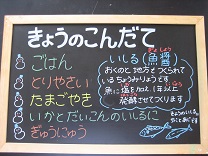 きょうのこんだて
ごはん
とりやさい
たまごやき
いかとだいこんのいしるに
ぎゅうにゅう
いしる(魚醤)
おくのと地方でつくられて
いるちょうみりょうです。
魚に塩を加え1年以上
発酵させてつくります